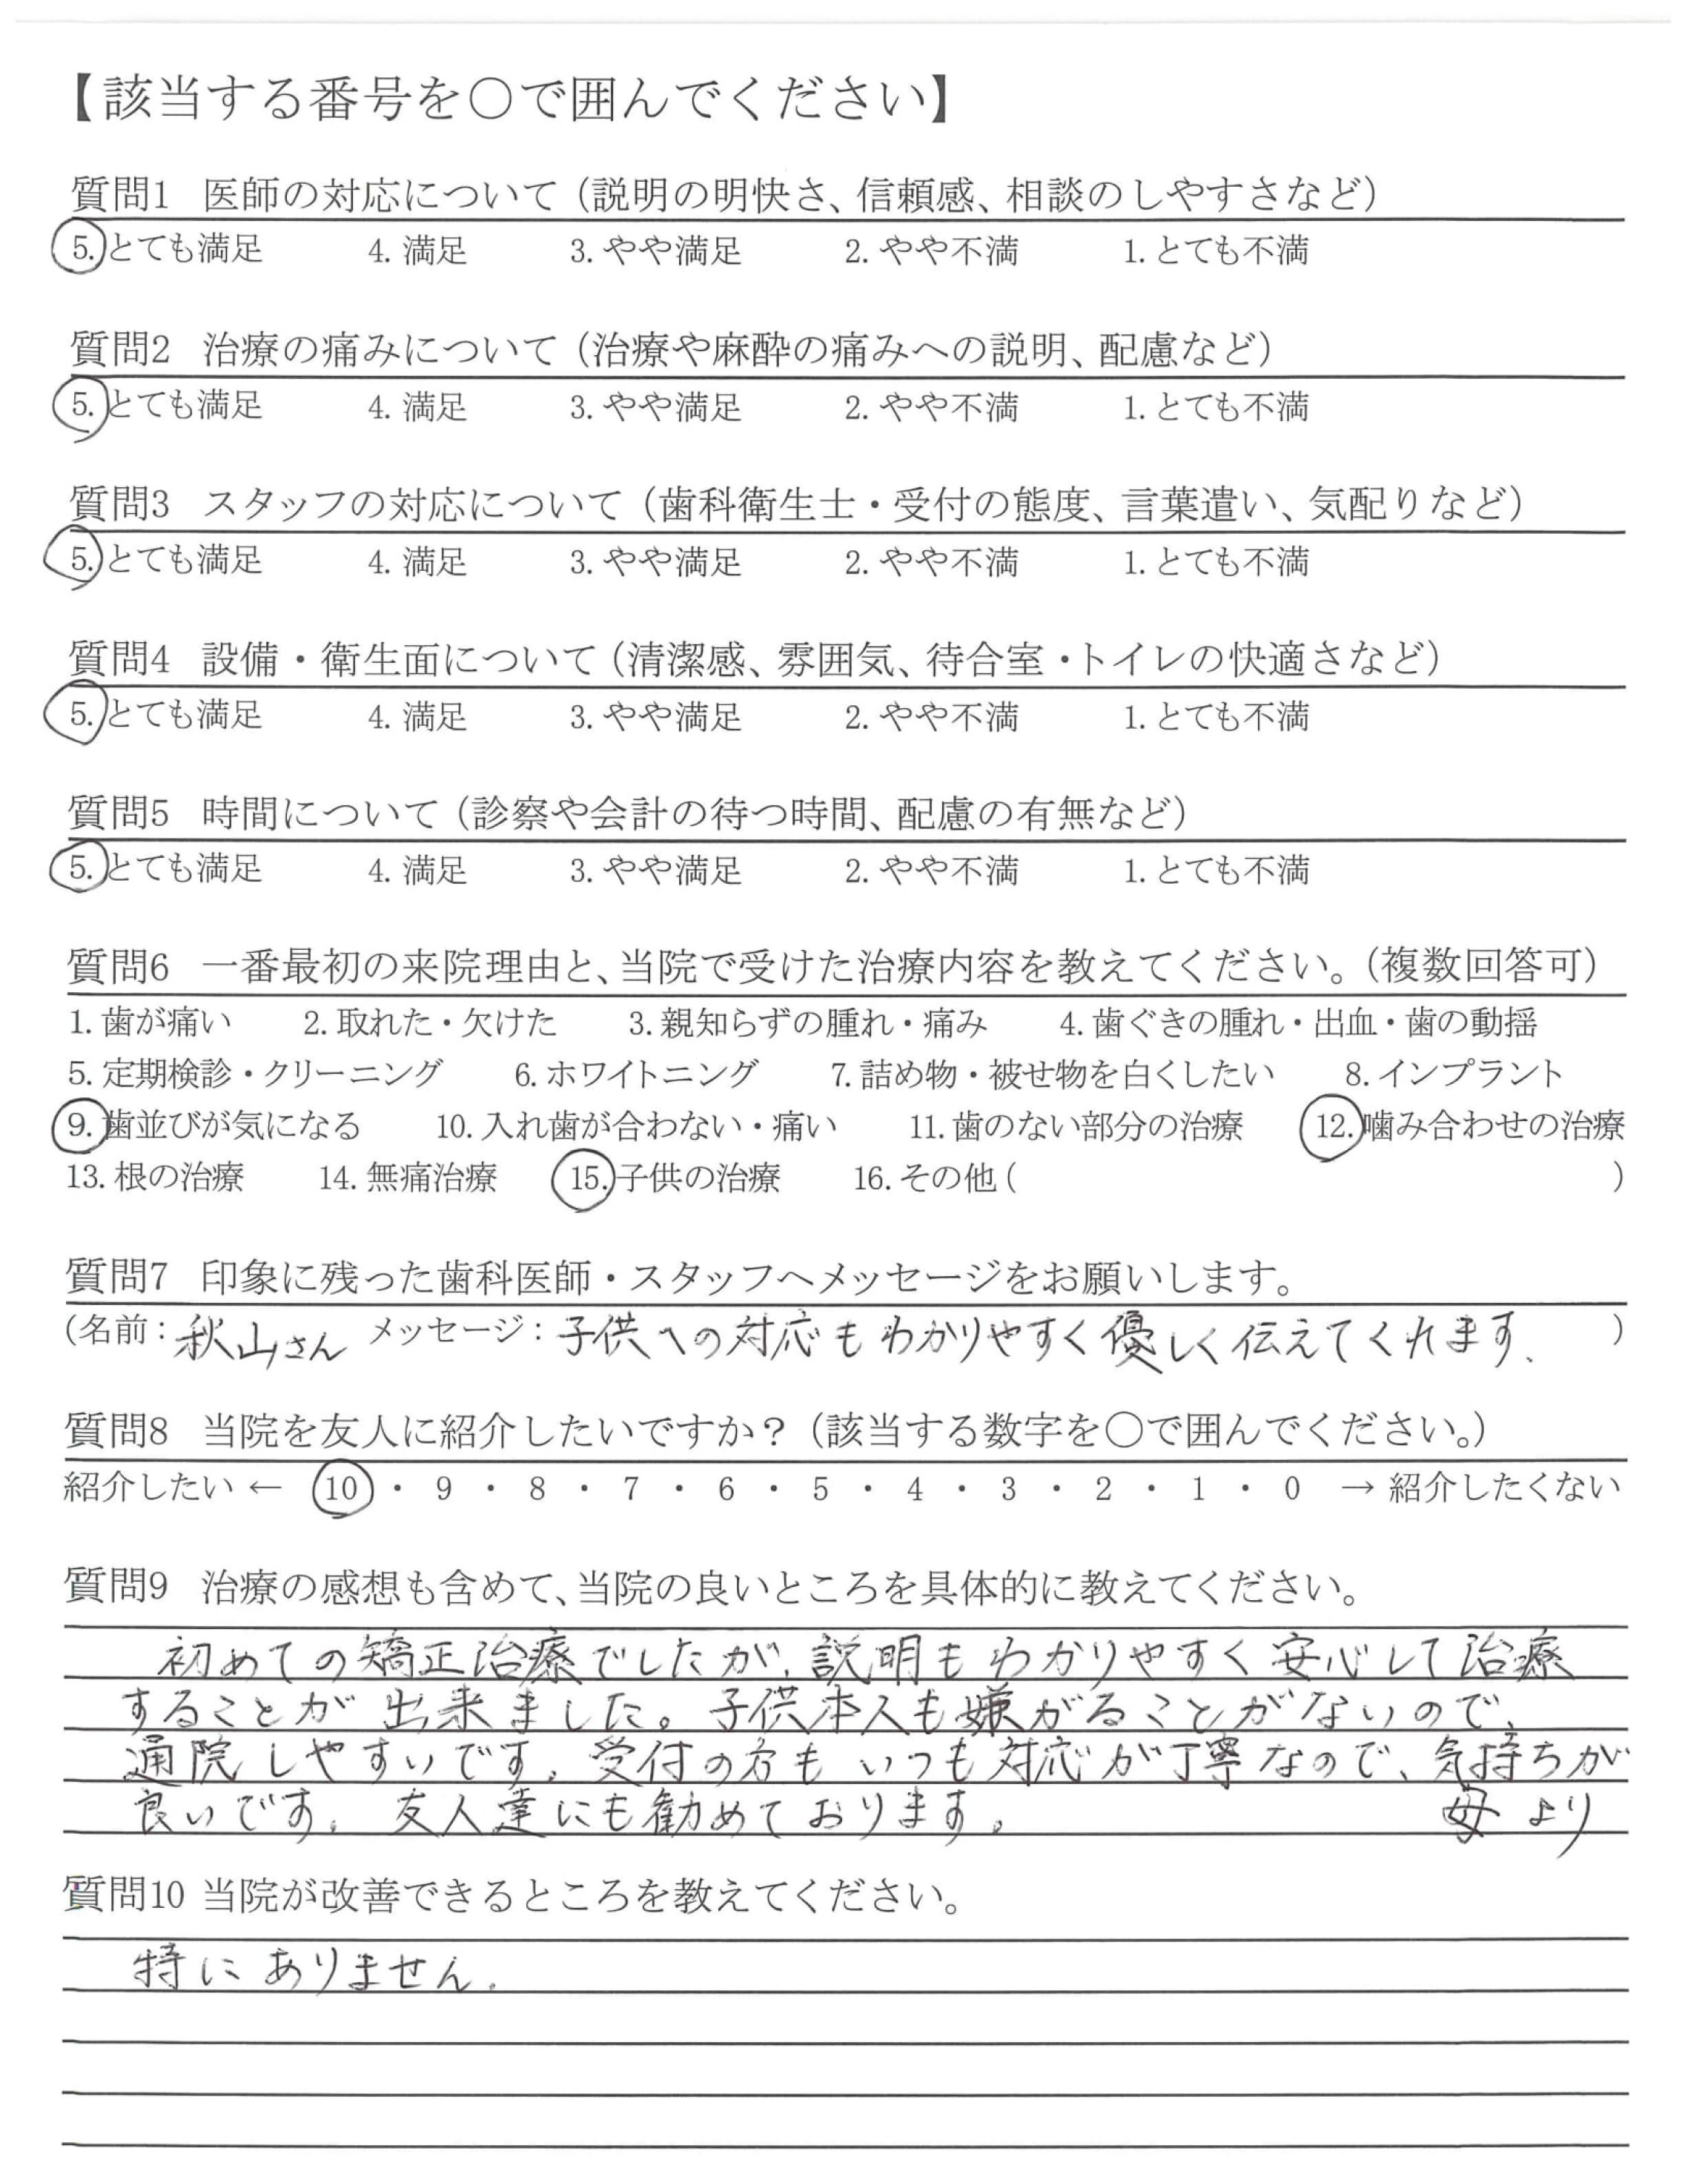 【該当する番号を○で囲んでください】
質問1 医師の対応について（説明の明快さ、信頼感、相談のしやすさなど）
5. とても満足 4. 満足 3. やや満足 2. やや不満 1. とても不満
質問2 治療の痛みについて（治療や麻酔の痛みへの説明、配慮など）
5. とても満足 4. 満足 3. やや満足 2. やや不満 1. とても不満
質問3 スタッフの対応について（歯科衛生士・受付の態度、言葉遣い、気配りなど）
5. とても満足 4. 満足 3. やや満足 2. やや不満 1. とても不満
質問4 設備・衛生面について（清潔感、雰囲気、待合室・トイレの快適さなど）
5. とても満足 4. 満足 3. やや満足 2. やや不満 1. とても不満
質問5 時間について（診察や会計の待つ時間、配慮の有無など）
5. とても満足 4. 満足 3. やや満足 2. やや不満 1. とても不満
質問6 一番最初の来院理由と、当院で受けた治療内容を教えてください。（複数回答可）
1. 歯が痛い 2. 取れた・欠けた 3. 親知らずの腫れ・痛み 4. 歯ぐきの腫れ・出血・歯の動揺
5. 定期検診・クリーニング 6. ホワイトニング 7. 詰め物・被せ物を白くしたい 8. インプラント
9. 歯並びが気になる 10. 入れ歯が合わない・痛い 11. 歯のない部分の治療 12. 噛み合わせの治療
13. 根の治療 14. 無痛治療 15. 子供の治療 16. その他（ ）
質問7 印象に残った歯科医師・スタッフへメッセージをお願いします。
（名前：秋山さん メッセージ：子供への対応もわかりやすく優しく伝えてくれます、 ）
質問8 当院を友人に紹介したいですか？（該当する数字を○で囲んでください。）
紹介したい ← 10 ・ 9 ・ 8 ・ 7 ・ 6 ・ 5 ・ 4 ・ 3 ・ 2 ・ 1 ・ 0 → 紹介したくない
質問9 治療の感想も含めて、当院の良いところを具体的に教えてください。
初めての矯正治療でしたが、説明もわかりやすく安心して治療
することが出来ました。子供本人も嫌がることがないので、
通院しやすいです。受付の方もいつも対応が丁寧なので、気持ちが
良いです。友人達にも勧めております。 母より
質問10 当院が改善できるところを教えてください。
特にありません。